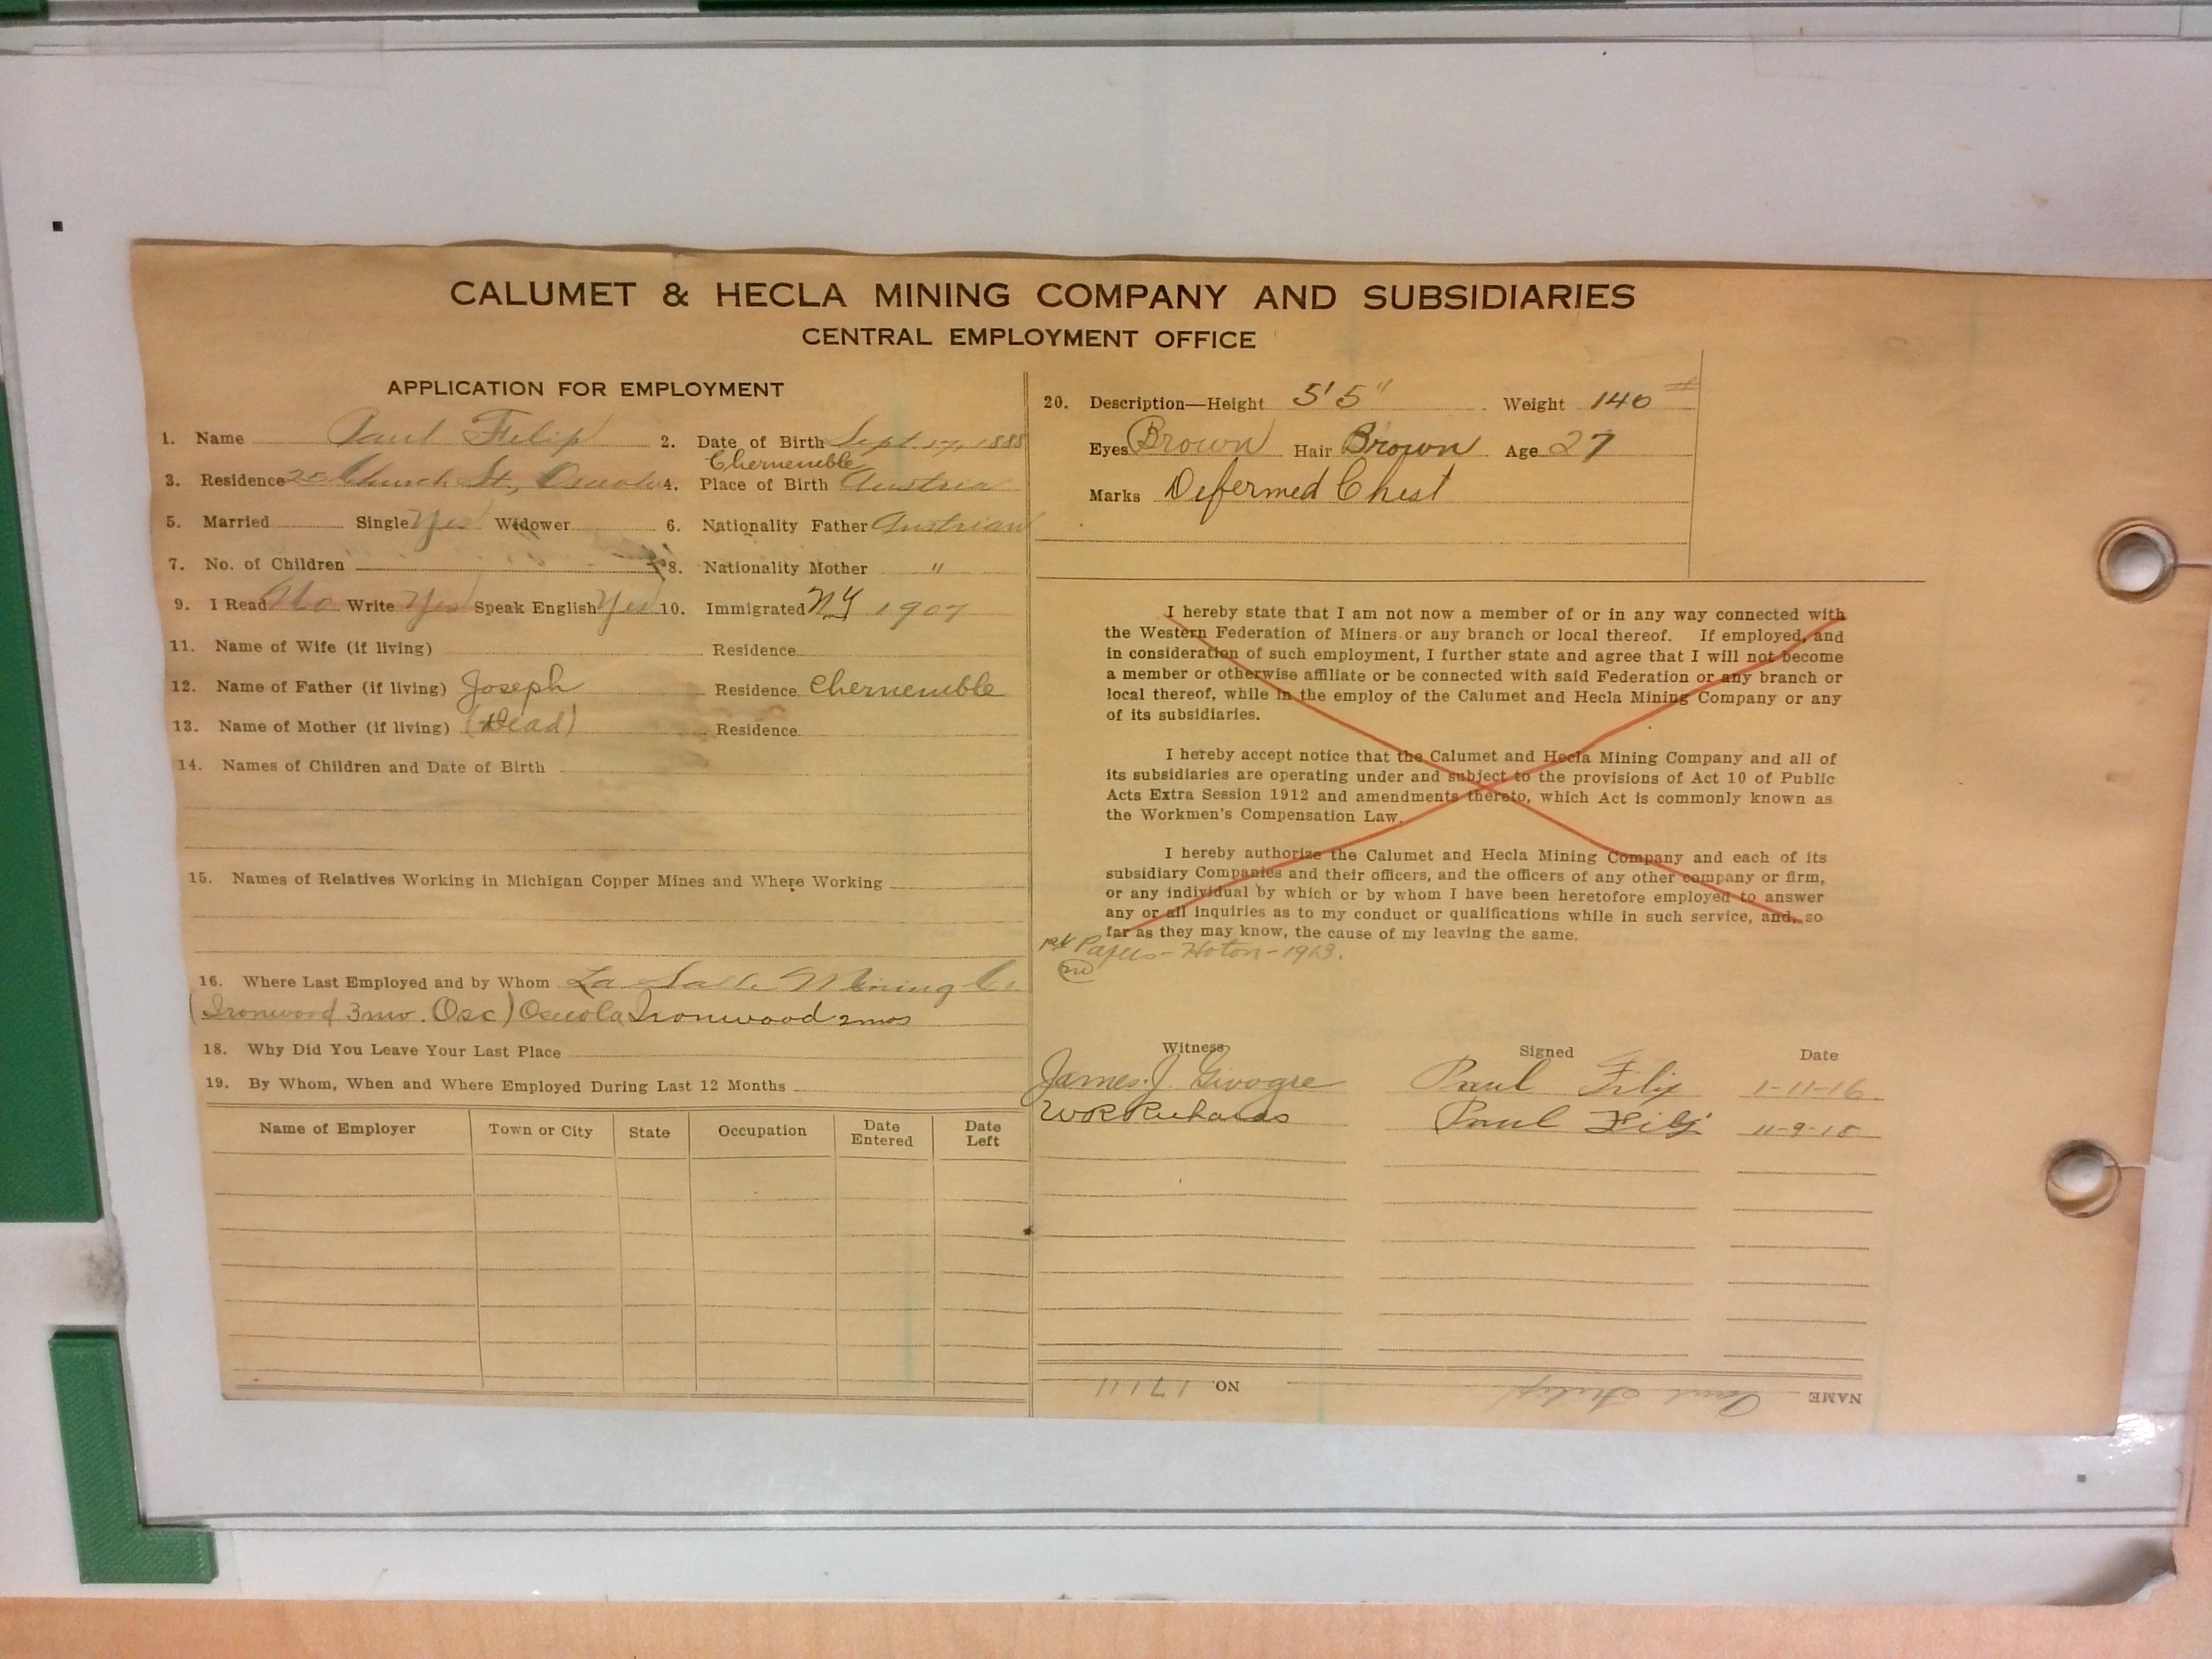 CALUMET & HECLA MINING COMPANY AND SUBSIDIARIES
CENTRAL EMPLOYMENT OFFICE
APPLICATION FOR EMPLOYMENT
1. Name Paul Filip 2. Date of Birth Sept. 17, 1888
3. Residence 20 Church St., Osceola 4. Place of Birth Chernemble Austria
5. Married Single Yes Widower 6. Nationality Father Austrian
7. No. of Children 8. Nationality Mother "
9. I Read No Write Yes Speak English Yes 10. Immigrated NY 1907
11. Name of Wife (if living) Residence
12. Name of Father (if living) Joseph Residence Chernemble
13. Name of Mother (if living) (Dead) Residence
14. Names of Children and Date of Birth
15. Names of Relatives Working in Michigan Copper Mines and Where Working
16. Where Last Employed and by Whom La Salle Mining Co
(Ironwood 3 mo. Osc) Osceola Ironwood 2 mos
18. Why Did You Leave Your Last Place
19. By Whom, When and Where Employed During Last 12 Months
Name of Employer Town or City State Occupation Date Entered Date Left
20. Description—Height 5' 5" Weight 140 #
Eyes Brown Hair Brown Age 27
Marks Deformed Chest
I hereby state that I am not now a member of or in any way connected with
the Western Federation of Miners or any branch or local thereof. If employed, and
in consideration of such employment, I further state and agree that I will not become
a member or otherwise affiliate or be connected with said Federation or any branch or
local thereof, while in the employ of the Calumet and Hecla Mining Company or any
of its subsidiaries.
I hereby accept notice that the Calumet and Hecla Mining Company and all of
its subsidiaries are operating under and subject to the provisions of Act 10 of Public
Acts Extra Session 1912 and amendments thereto, which Act is commonly known as
the Workmen's Compensation Law.
I hereby authorize the Calumet and Hecla Mining Company and each of its
subsidiary Companies and their officers, and the officers of any other company or firm,
or any individual by which or by whom I have been heretofore employed to answer
any or all inquiries as to my conduct or qualifications while in such service, and, so
far as they may know, the cause of my leaving the same.
Papers - Hoton - 1913.
Witness Signed Date
James. J. Givogre Paul Filip 1-11-16
W R Richards Paul Filip 11-9-18
NAME Paul Filip NO. 17111